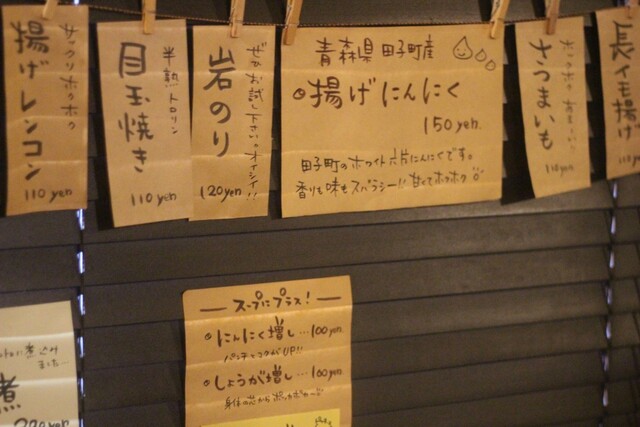 サックリホクホク
揚げレンコン
110yen
半熟トロリン
目玉焼き
110yen
ぜひお試し下さい。オイシイ!!
岩のり
120yen
青森県 田子町産
揚げにんにく
150yen
田子町のホワイト六片にんにくです。
香りも味もスバラシー!! 甘くてホクホク
さつまいも
110yen
長イモ揚げ
110
スープにプラス!
にんにく増し…100yen
パンチとコクがUP!!
しょうが増し…100yen
身体の芯から
煮